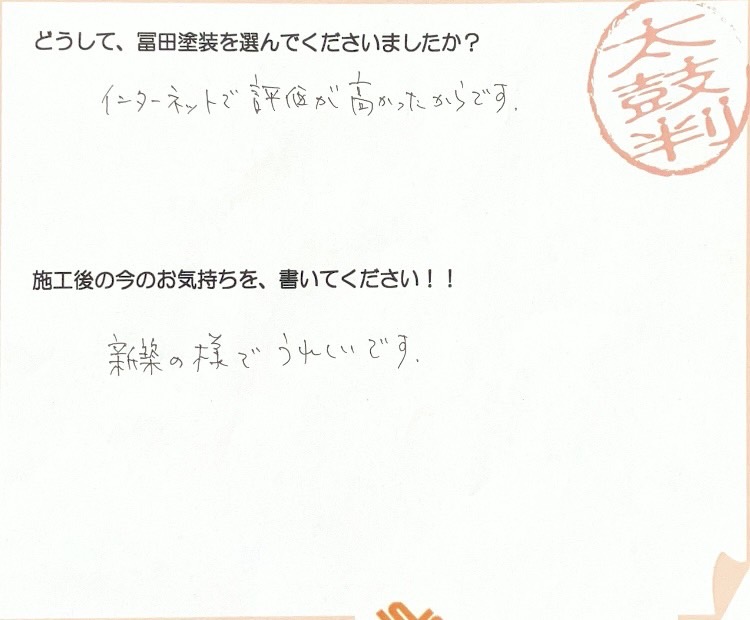 どうして、冨田塗装を選んでくださいましたか？
インターネットで評価が高かったからです.
太鼓判
施工後の今のお気持ちを、書いてください！！
新築の様でうれしいです.